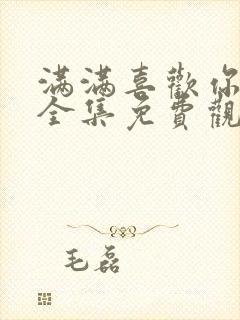 滿滿喜歡你
全集免費觀
毛磊